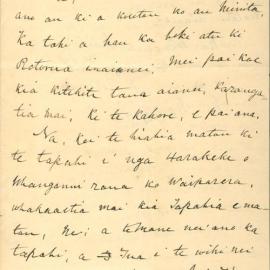 ano au ki a koutou ko au Minita,
Ka tahi a hau ka hoki atu ki
Rotorua inaianei, mei pai koe
kia kitekite taua aianei, karanga
tia mai, ki te kahore, e pai ana.
Na, kei te hiahia matou ki
te tapahi i nga Harakeke o
Whanganui raua ko Waiparera,
whakaaetia mai kia Tapahia e ma
tou, Hei a te mane nei ano ka
tapahi, a Ina i te wiki nei